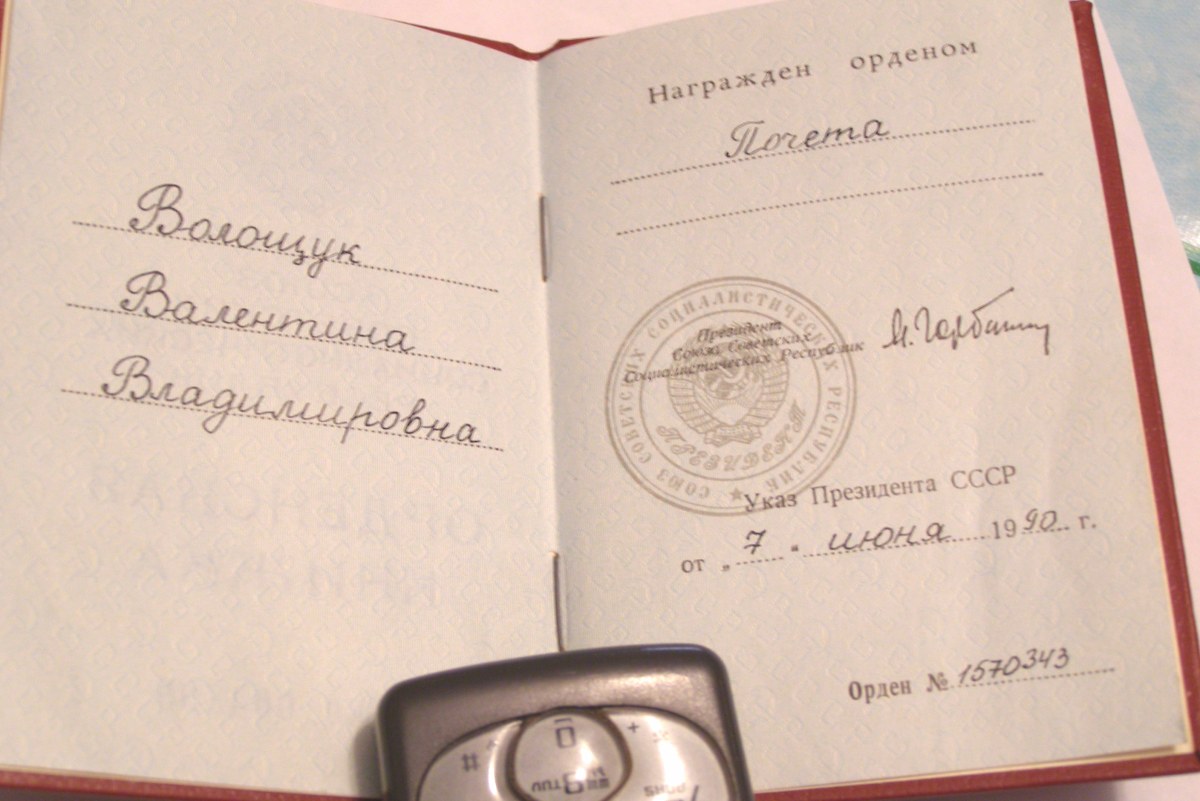 Волощук
Валентина
Владимировна
Награжден орденом
Почета
СОЮЗ СОВЕТСКИХ СОЦИАЛИСТИЧЕСКИХ РЕСПУБЛИК
Президент
Союза Советских
Социалистических Республик
М. Горбачев
ПРЕЗИДЕНТ
Указ Президента СССР
от „ 7 “ июня 1990 г.
Орден № 1570343